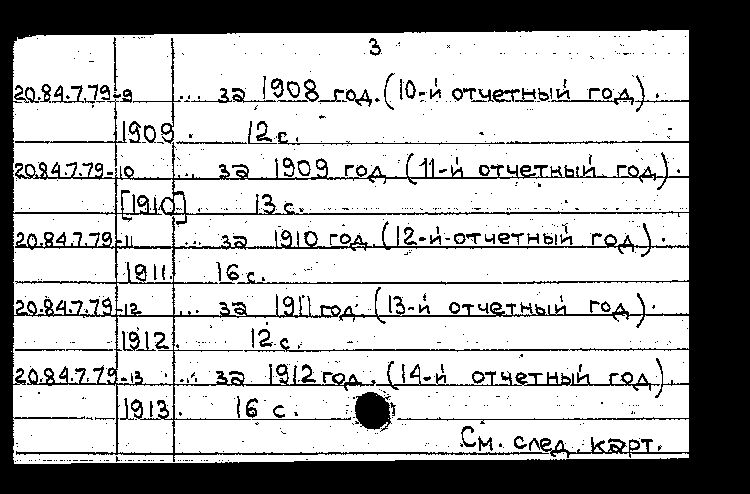 3
20.84.7.79-9 ... за 1908 год. (10-й отчетный год).
1909. 12 с.
20.84.7.79-10 ... за 1909 год. (11-й отчетный год).
[1910]. 13 с.
20.84.7.79-11 ... за 1910 год. (12-й отчетный год).
1911. 16 с.
20.84.7.79-12 ... за 1911 год. (13-й отчетный год).
1912. 12 с.
20.84.7.79-13 ... за 1912 год. (14-й отчетный год).
1913. 16 с.
См. след. карт.